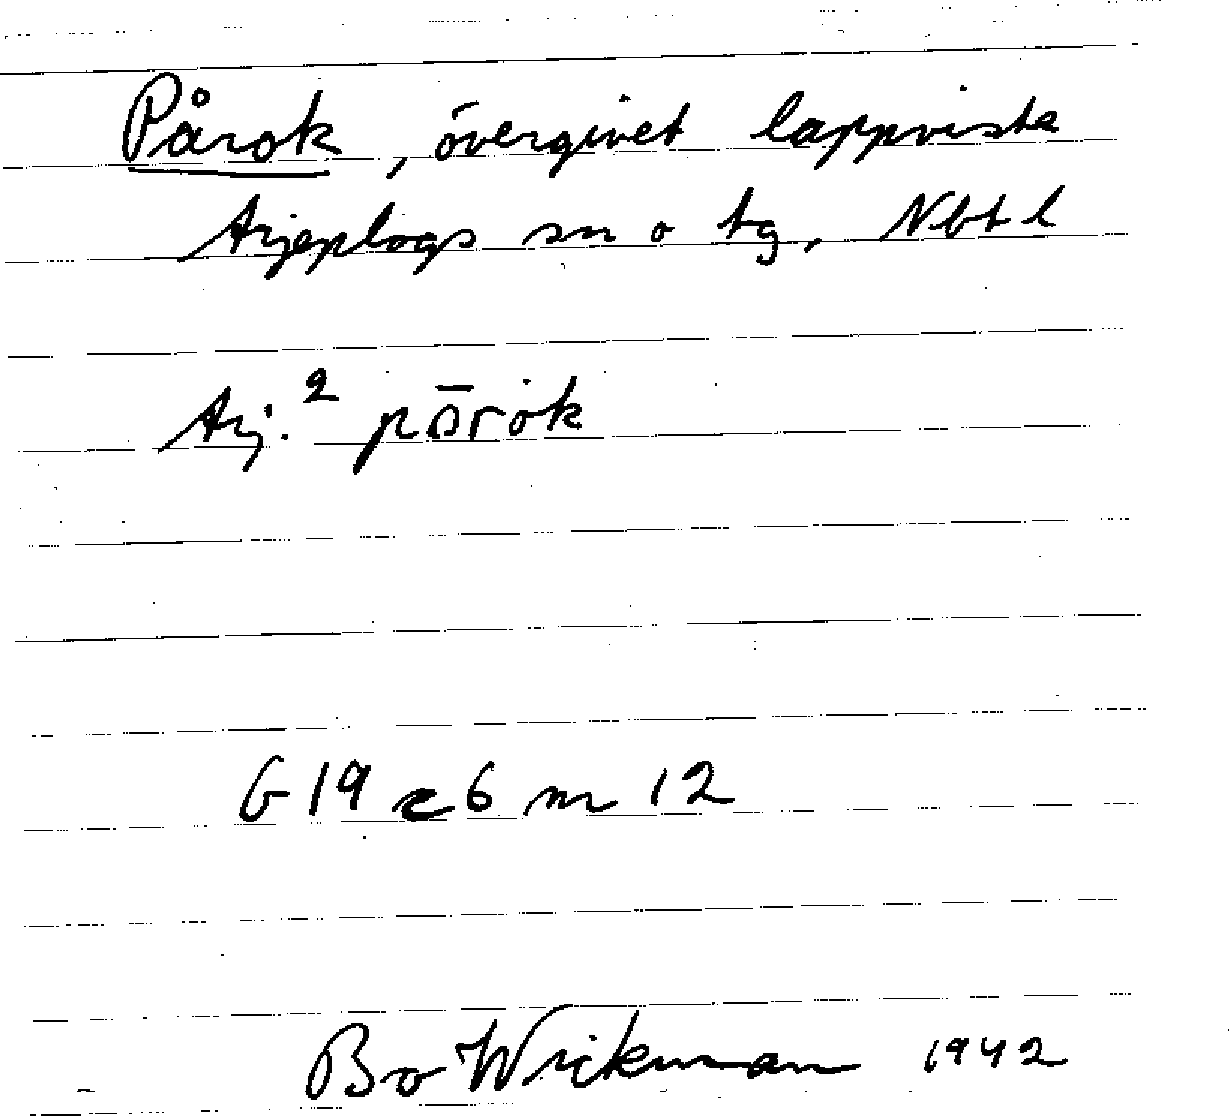 Pårok, övergivet lappviste
Arjeplogs sn o tg, Nbt l
Arj.² pōrok
G 19 c 6 m 12
Bo Wickman 1942